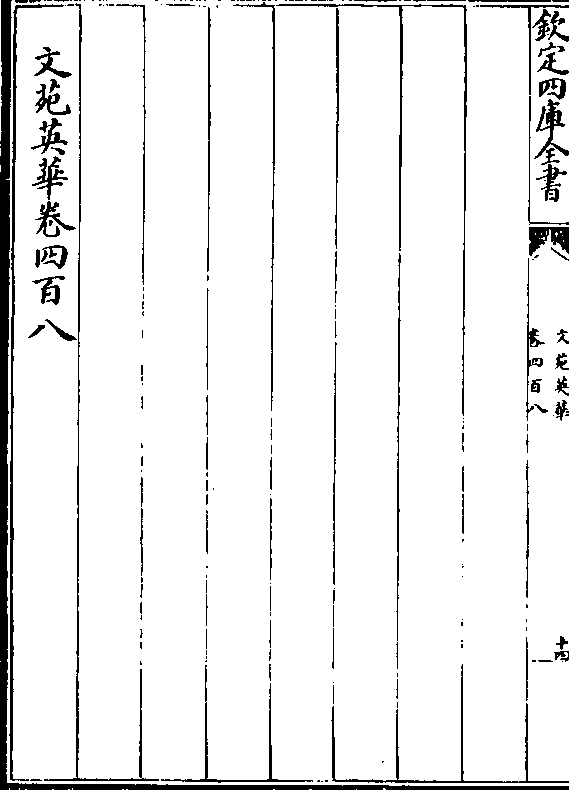 欽定四庫全書
文苑英華
卷四百八
十四
文苑英華卷四百八